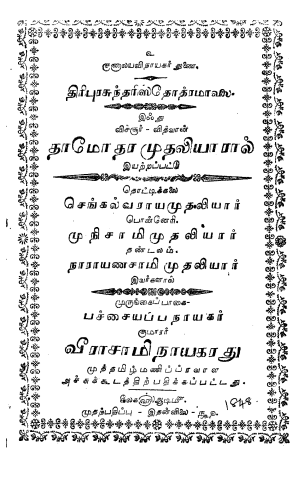 உ
விநாயகர் துணை.
திரிபுரசுந்தரிஸ்தோத்ரமாலை.
இஃது
வித்வான்
தாமோதர முதலியாரால்
இயற்றப்பட்டு
தொட்டிக்கலை
செங்கல்வராயமுதலியார்
பொன்னேரி.
முநிசாமிமுதலியார்
தண்டலம்.
நாராயணசாமிமுதலியார்
இவர்களால்
முருங்கைப்பாகை
பச்சையப்பநாயகர்
குமாரர்
வீராசாமிநாயகரது
முத்தமிழ்மணிப்ரவாள
அச்சுக்கூடத்திற்பதிக்கப்பட்டது.
முதற்பதிப்பு - இதன்விலை -
1848